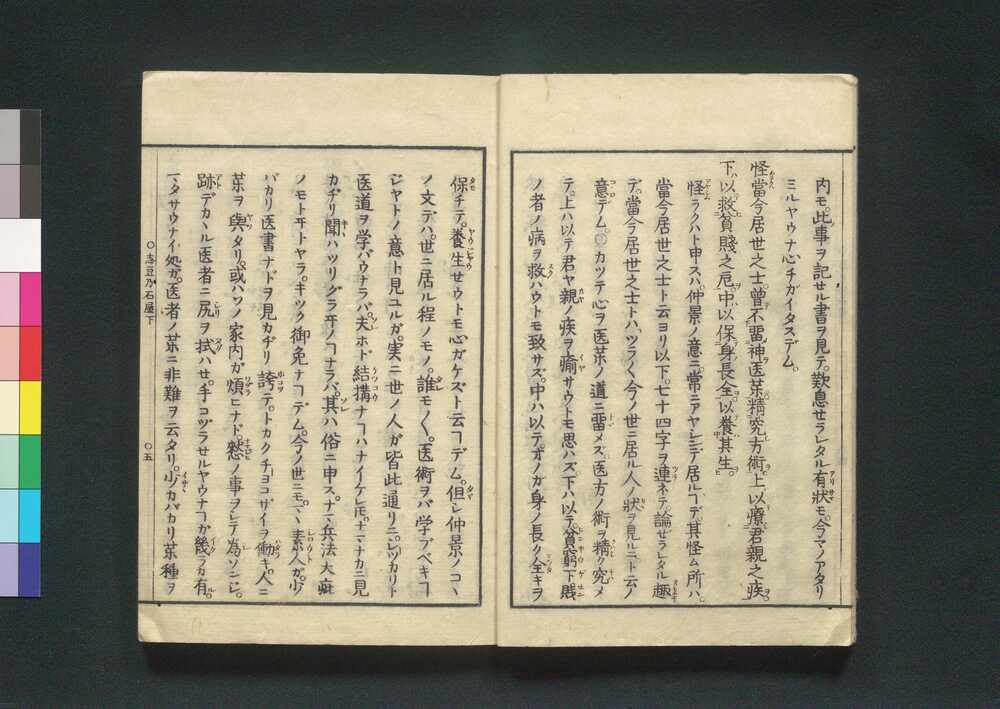 内モ。此事ヲ記セル書ヲ見テ。歎息セラレタル有狀モ。今マノアタリ
ミルヤウナ心チガイタスデム。
怪當今居世之士。曽不畱神医薬。精究方術。上以療君親之疾。
下以救貧賤之厄。中以保身長全。以養其生。
怪ラクハト申スハ。仲景ノ意ニ。常ニアヤシンデ居ルヿデ。其怪ム所ハ。
當今居世之士ト云ヨリ以下。七十四字ヲ連ネテ。論ゼラレタル趣
デ。當今居世之士トハ。ツラ〱今ノ世ニ居ル人ノ狀ヲ見ルニト云ノ
意デム。カツテ心ヲ医薬ノ道ニ畱メズ。医方ノ術ヲ精ク究メ
テ。上ハ以テ君ヤ親ノ疾ヲ瘉サウトモ思ハズ。下ハ以テ。貧窮下賎
ノ者ノ病ヲ救ハウトモ致サズ。中ハ以テオノガ身ノ長ク全キヲ
保チテ。養生セウトモ心ガケズト云ヿデム。但シ仲景ノコヽ
ノ文デハ。世ニ居ル程ノモノ。誰モ〱。医術ヲバ学ブベキヿ
ジヤトノ意ト見ユルガ。実ニ世ノ人ガ皆此通リニ。シツカリト
医道ヲ学バウナラバ。夫ホド結構ナヿハナイケレドモ。ナマナカニ見
カヂリ聞ハツリグラヰノヿナラバ。其ハ俗ニ申ス。ナマ兵法大疵
ノモトヰトヤラ。キツク御免ナヿデム。今ノ世ニモ。マヽ素人ガ。少
バカリ医書ナドヲ見カヂリ誇テ。トカクチヨコザイヲ働キ。人ニ
薬ヲ與タリ。或ハソノ家内ガ煩ヒナド。愁ノ事ヲシテ為ソンジ。
跡デカヽル医者ニ尻ヲ拭ハセ。手コヅラセルヤウナヿガ幾ラカ有。
マタサウナイ処ガ。医者ノ薬ニ非難ヲ云タリ。少カバカリ薬種ヲ
○志豆乃石屋下
○五